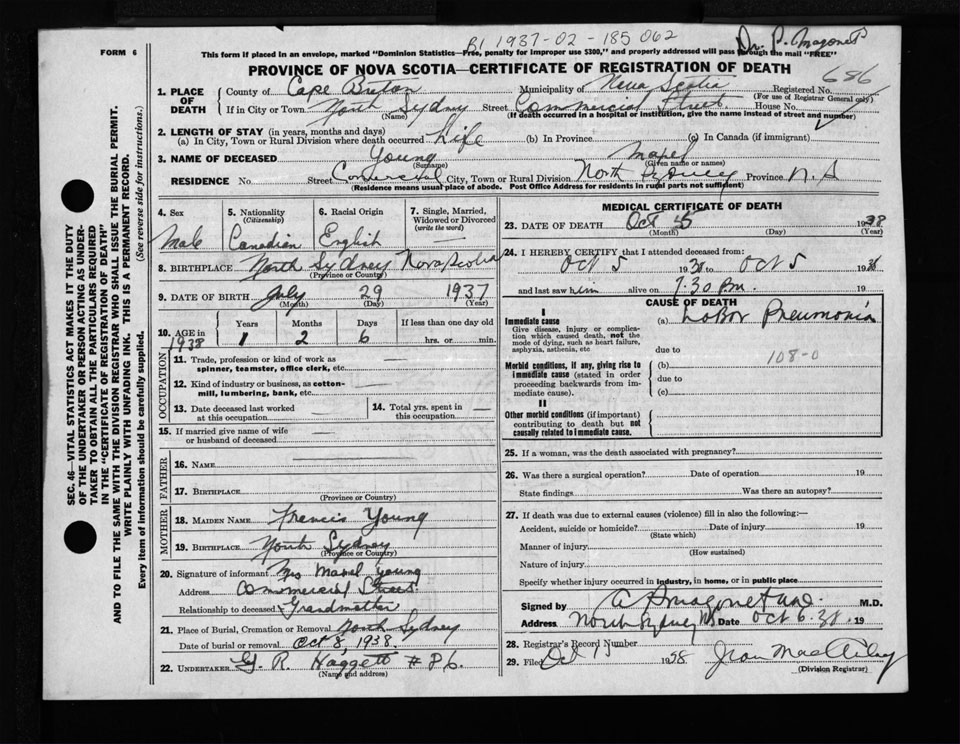 FORM 6
BI 1937-02-185062
Dr. P. Magonet
This form if placed in an envelope, marked "Dominion Statistics—Free, penalty for improper use $300," and properly addressed will pass through the mail "FREE"
PROVINCE OF NOVA SCOTIA—CERTIFICATE OF REGISTRATION OF DEATH
686
1. PLACE OF DEATH
County of Cape Breton Municipality of Nova Scotia Registered No.
(For use of Registrar General only)
If in City or Town North Sydney Street Commercial Street House No.
(Name) (If death occurred in a hospital or institution, give the name instead of street and number)
2. LENGTH OF STAY (in years, months and days)
(a) In City, Town or Rural Division where death occurred Life (b) In Province (c) In Canada (if immigrant)
3. NAME OF DECEASED Young
(Surname) (Given name or names)
RESIDENCE No. Street Comercial City, Town or Rural Division North Sydney Province N.S
(Residence means usual place of abode. Post Office Address for residents in rural parts not sufficient)
4. Sex Male
5. Nationality (Citizenship) Canadian
6. Racial Origin English
7. Single, Married, Widowed or Divorced (write the word) —
8. BIRTHPLACE North Sydney Nova Scotia
(Province or Country)
9. DATE OF BIRTH July 29 1937
(Month) (Day) (Year)
10. AGE in 1938
Years Months Days If less than one day old
1 2 6 hrs. or min.
OCCUPATION
11. Trade, profession or kind of work as spinner, teamster, office clerk, etc. —
12. Kind of industry or business, as cotton-mill, lumbering, bank, etc. —
13. Date deceased last worked at this occupation —
14. Total yrs. spent in this occupation —
15. If married give name of wife or husband of deceased —
FATHER
16. NAME
17. BIRTHPLACE
(Province or Country)
MOTHER
18. MAIDEN NAME Francis Young
19. BIRTHPLACE North Sydney
(Province or Country)
20. Signature of informant Mrs Young
Address Commercial Street
Relationship to deceased Grandmother
21. Place of Burial, Cremation or Removal North Sydney
Date of burial or removal Oct 8, 1938.
22. UNDERTAKER G. R. Haggett #86.
(Name and address)
MEDICAL CERTIFICATE OF DEATH
23. DATE OF DEATH Oct 5 1938
(Month) (Day) (Year)
24. I HEREBY CERTIFY that I attended deceased from:
Oct 5 1938 to Oct 5 1938
and last saw him alive on 7.30 P.m. 19
CAUSE OF DEATH
I
Immediate cause
Give disease, injury or complication which caused death, not the mode of dying, such as heart failure, asphyxia, asthenia, etc
(a) Lobar Pneumonia
due to
108-0
Morbid conditions, if any, giving rise to immediate cause (stated in order proceeding backwards from immediate cause).
(b)
due to
(c)
II
Other morbid conditions (if important) contributing to death but not causally related to immediate cause.
25. If a woman, was the death associated with pregnancy?
26. Was there a surgical operation? Date of operation 19
State findings Was there an autopsy?
27. If death was due to external causes (violence) fill in also the following:—
Accident, suicide or homicide? Date of injury 19
(State which)
Manner of injury
(How sustained)
Nature of injury
Specify whether injury occurred in industry, in home, or in public place
Signed by M.D.
Address North Sydney NS Date Oct 6.38. 19
28. Registrar's Record Number
29. Filed Oct 15 1938
(Division Registrar)
SEC. 46—VITAL STATISTICS ACT MAKES IT THE DUTY
OF THE UNDERTAKER OR PERSON ACTING AS UNDER-
TAKER TO OBTAIN ALL THE PARTICULARS REQUIRED
IN THE "CERTIFICATE OF REGISTRATION OF DEATH"
AND TO FILE THE SAME WITH THE DIVISION REGISTRAR WHO SHALL ISSUE THE BURIAL PERMIT.
WRITE PLAINLY WITH UNFADING INK. THIS IS A PERMANENT RECORD.
Every item of information should be carefully supplied. (See reverse side for instructions.)